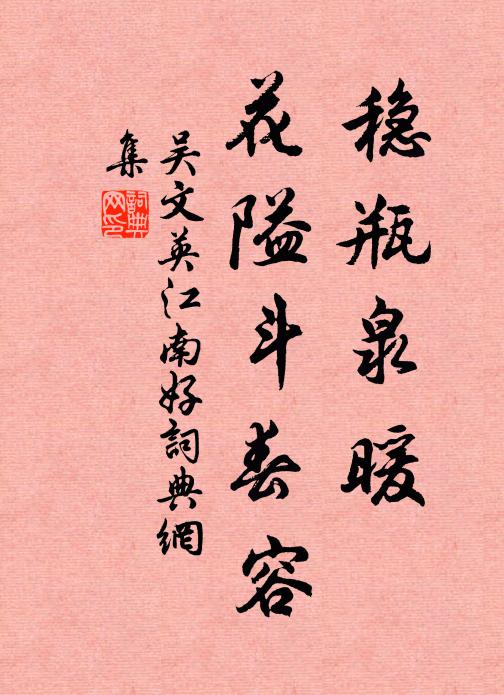 稳瓶泉暖
花隘斗春容
吴文英江南好詞典網
集
詞典
网印